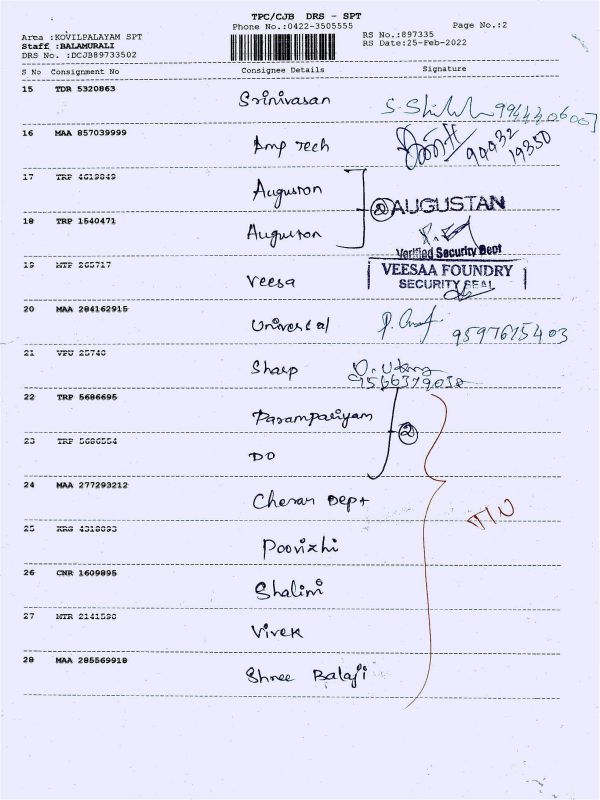 TPC/CJB DRS - SPT
Phone No.:0422-3505555
Page No.:2
Area :KOVILPALAYAM SPT
RS No.:897335
Staff :BALAMURALI
RS Date:25-Feb-2022
DRS No. :DCJB89733502
S No Consignment No Consignee Details Signature
15 TDR 5320863 Srinivasan
16 MAA 857039999 Amp Tech
99932
19350
17 TRP 4619849 Auguston
② AUGUSTAN
18 TRP 1540471 Auguston
Verified Security Dept
19 MTP 265717 Veesa
VEESAA FOUNDRY
SECURITY SEAL
20 MAA 284162915 Universal
9597615403
21 VPU 25740 Sharp
9566379038
22 TRP 5686695 Parampariyam
②
23 TRP 5686554 DO
24 MAA 277293212 Cheran Dept
TIN
25 KRG 4318093 Poovizhi
26 CNR 1609895 Shalini
27 MTR 2141590 Vivek
28 MAA 285569918 Shree Balaji